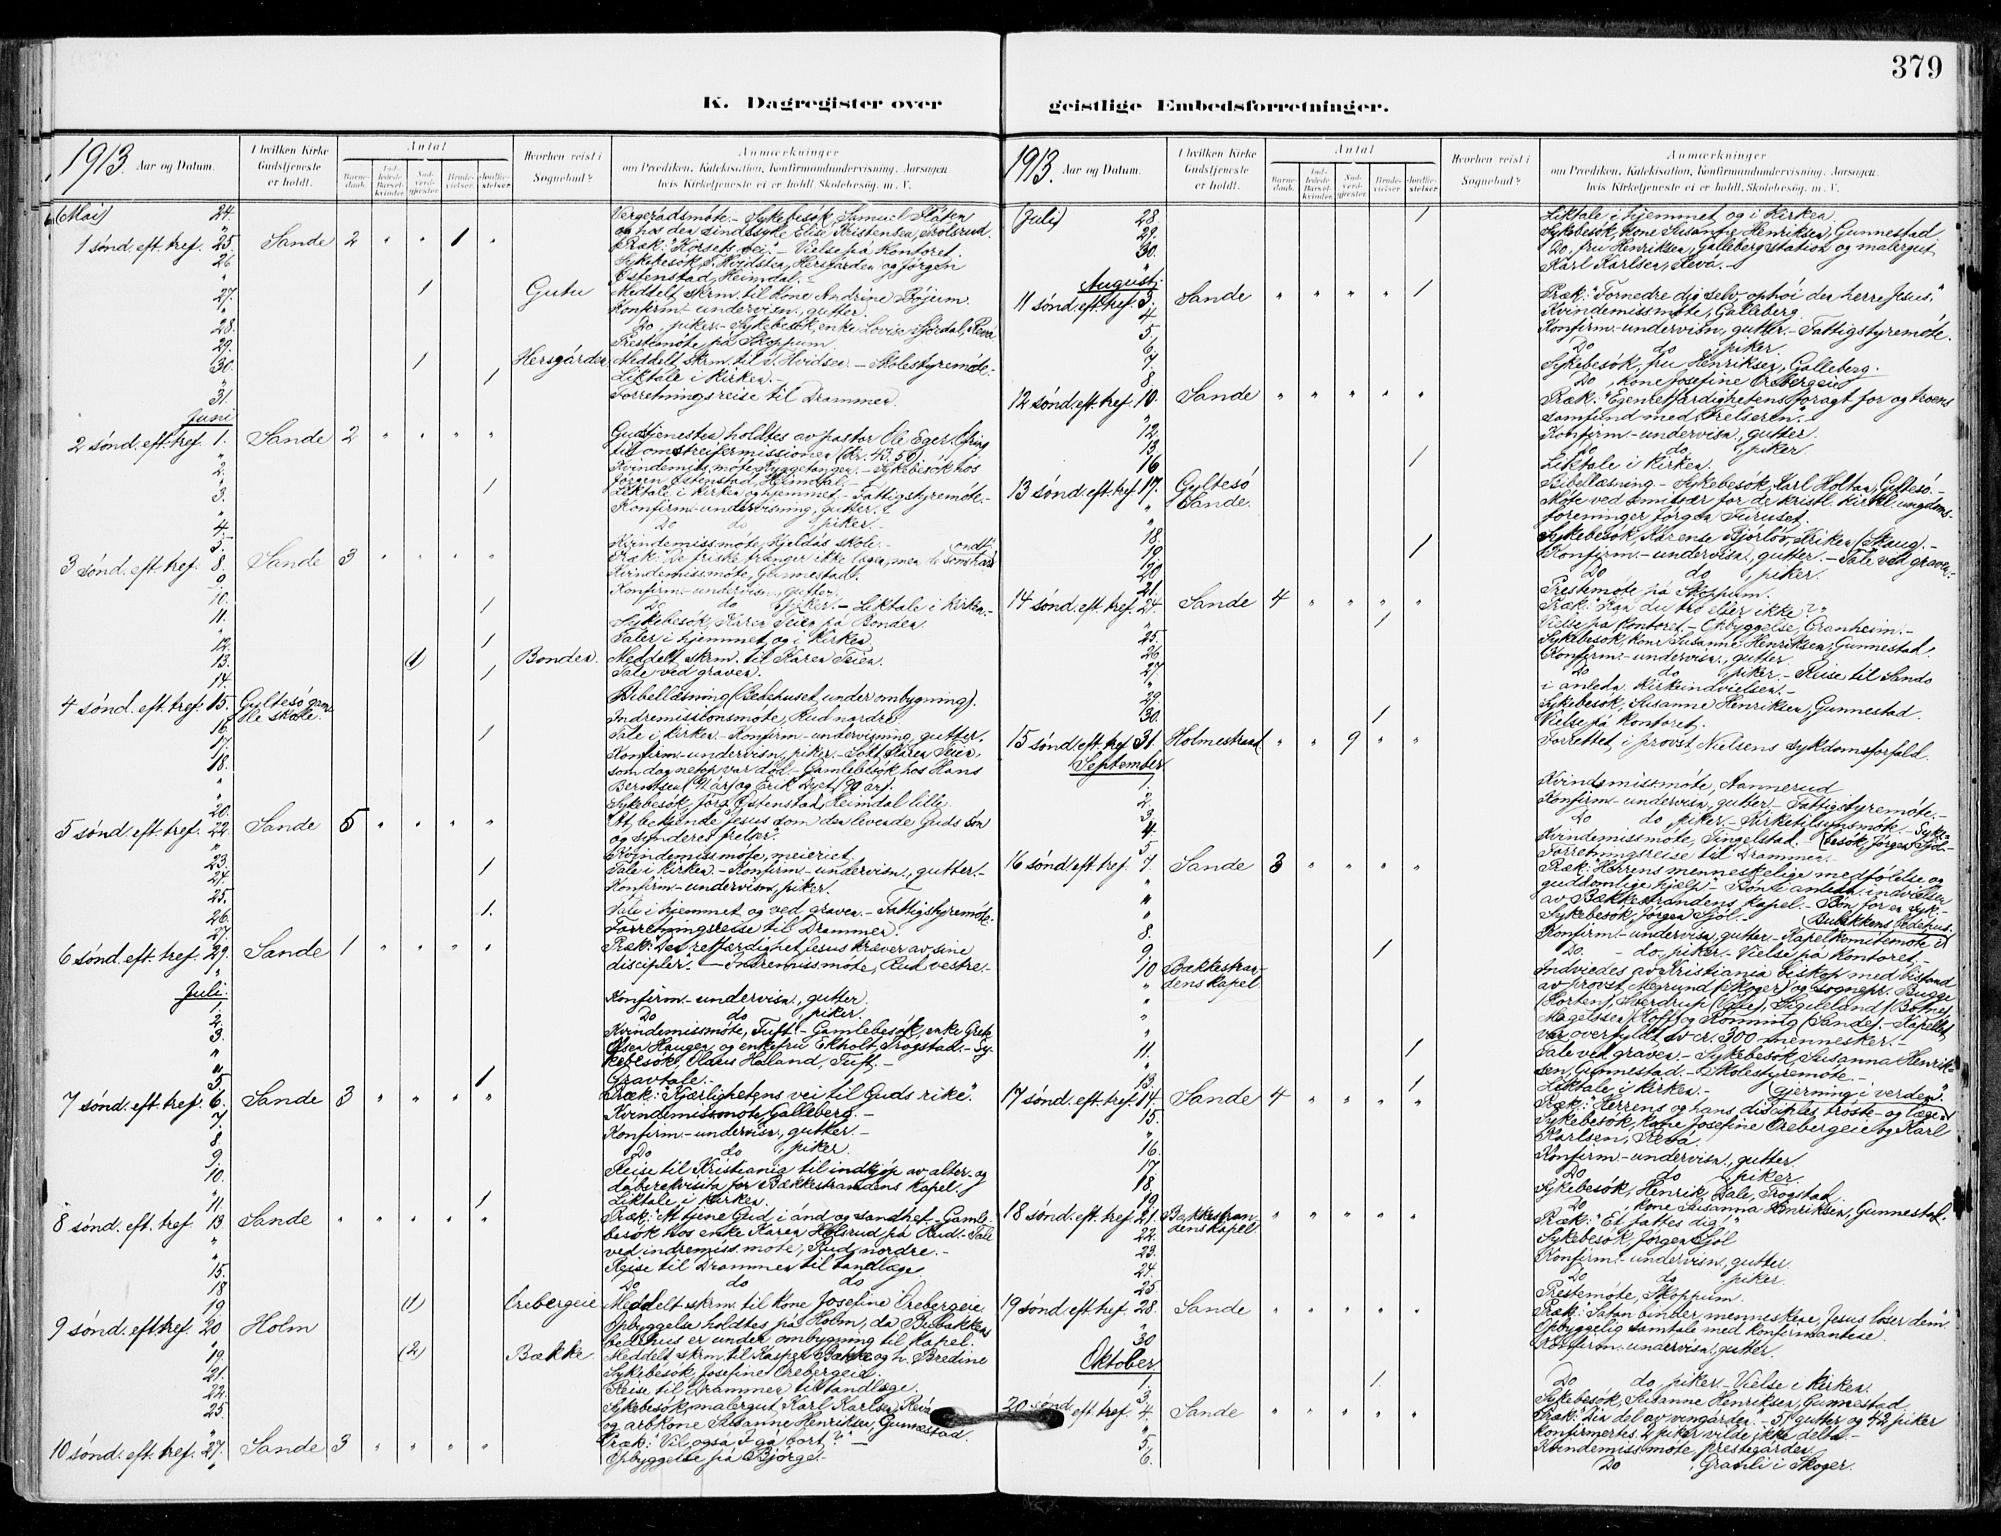 379
K. Dagregister over geistlige Embedsforretninger.
1913. Aar og Datum.
I hvilken Kirke Gudstjeneste er holdt.
Antal
Barnedaab. Indledede Barselkvinder. Nadverdgjester Brudevielser. Jordfæstelser.
Hvorhen reist i Sognebud?
Anmærkninger
om Prædiken, Katekisation, Konfirmandundervisning. Aarsagen hvis Kirketjeneste ei er holdt. Skolebesøg. m. V.
(Mai) 24. Vergerådsmøte. - Sykebesök, Samuel Flåten
og hos den sindssyke Elise Kristensen, Trolsrud.
1 sønd. eft. tref. 25. Sande 2 " " 1 " Præk: "Korsets vei". - Vielse på kontoret.
26. Sykebesök, T. Hvidsten, Hersgården og Jørgen
Østenstad, Heimdal. -
27. 1 Gutu Meddelt skrm. til kone Andrine Bøjum.
Konfirm.-undervisn., gutter.
28. Do , piker. - Sykebesök, enke Lovise Fjørdal, Revå
29. Prestemöte på Skoppum.
30. 1 Hersgården Meddelt skrm. til T. Hvidsten. - Skolestyremöte.
1 Liktale i kirken. -
31. Forretningsreise til Drammen.
Juni
2 sönd. eft. tref. 1. Sande 2 " " " " Gudstjenesten holdtes av pastor Ole Eger. Ofring
til omstreifermissionen (Kr. 43.50).
2. Kvindemiss.möte, Ryggetangen. - Sykebesök hos
Jörgen Östenstad, Heimdal. -
3. 1 Liktale i kirken og hjemmet. - Fattigstyremöte. -
Konfirm.-undervisning, gutter.
4. Do do , piker. -
5. Kvindemissmöte, Kjeldås skole. -
3 sönd. eft. tref. 8. Sande 3 " " " " Præk: "De friske trænger ikke læge, men de som har ondt".
9. Kvindemiss.möte, Gunnestad.
10. Konfirm.-undervisn., gutter.
11. 1 Do do , piker. - Liktale i kirken. -
Sykebesök, Karen Teien på Bonden.
12. 1 Taler i hjemmet og i kirken.
13. (1) Bonden. Meddelt skrm. til Karen Teien.
14. 1 Tale ved graven.
4 sönd. eft. tref. 15. Gyltesö gamle skole. Bibellæsning (Bedehuset under ombygning).
Indremissionsmöte, Rud nordre.
16. 1 Tale i kirken. - Konfirm.-undervisning, gutter.
17. Konfirm.-undervisn., piker. - Sokt. Karen Teien,
18. som dog netop var död. - Gamlebesök hos Hans
Berntsen (92 år) og Erik Dyet (90 år).
20. Sykebesök, Jörg. Östenstad, Heimdal lille.
5 sönd. eft. tref. 22. Sande 5 " " " " "At bekjende Jesus som den levende Guds Sön
og synderes frelser".
Kvindemissmöte, meieriet.
23. 1 Tale i kirken. - Konfirm.-undervisn., gutter. -
24. Konfirm.-undervisn., piker.
25. 1. Tale i hjemmet og ved graven. - Fattigstyremöte.
26. Forretningsreise til Drammen.
27.
6 sönd. eft. tref. 29. Sande 1 " " " " Præk: "Den retfærdighet Jesus kræver av sine
disciple". - Indremissmöte, Rud vestre. -
Juli.
1. Konfirm.-undervisn., gutter.
2. Do do , piker.
3. Kvindemissmöte, Tuft. - Gamlebesök, enke Grete
Olsen Haugen, og enkefru Ekholt, Trogstad. - Sykebesök,
Olaus Holland, Tuft. -
5. 1 Gravtale. -
7 sönd. eft. tref. 6. Sande 3 " " " " Præk: "Kjærlighetens vei til Guds rike".
7. Kvindemissmöte, Galleberg. -
8. Konfirm.-undervisn., gutter. -
9. Do do , piker.
10. Reise til Kristiania til indkjöp av alter- og
dåbsrekvisita for Bækkestrandens kapel.
11. 1 Liktale i kirken.
8 sönd. eft. tref. 13 Sande " " " " " Præk: "At tjene Gud i ånd og sandhet. - Gamlebesök
hos enke Karen Helsrud på Rud. - Tale
ved indremiss.möte, Rud nordre. -
15. Reise til Drammen til tandlæge
18 Do do do
19. (1) Orebergeie Meddelt skrm. til kone Josefine Orebergeie.
9 sönd. eft. tref. 20 Holm Opbyggelse holdtes på Holm, da Bubakkens
bedehus er under ombygning til kapel.
19. (2) Bække Meddelt skrm. til Kasper Bække og h. Bredine
21. Sykebesök, Josefine Orebergeie.
22. Reise til Drammen til tandlæge.
25. Sykebesök, malergut Karl Karlsen, Revå
og arb.kone Susanne Henriksen, Gunnestad
10 sönd. eft. tref. 27. Sande 3 " " " " Præk: "Vil også I gå bort?" -
Opbyggelse på Bjørge. -
1913. Aar og Datum.
I hvilken Kirke Gudstjeneste er holdt.
Antal
Barnedaab. Indledede Barselkvinder. Nadverdgjester Brudevielser. Jordfæstelser.
Hvorhen reist i Sognebud?
Anmærkninger
om Prædiken, Katekisation, Konfirmandundervisning. Aarsagen hvis Kirketjeneste ei er holdt. Skolebesøg. m. V.
(Juli) 28. 1 Liktale i hjemmet og i kirken.
29. Sykebesök, kone Susanne Henriksen, Gunnestad
30. Do , fru Henriksen, Galleberg station og malergut
Karl Karlsen, Revå. -
August.
11 sönd. eft. tref. 3. Sande " " " " 1 Præk: "Fornedre dig selv, ophöi den herre Jesus."
4. Kvindemissmöte, Galleberg.
5. Konfirm.-undervisn., gutter. - Fattigstyremöte.
6. Do do , piker.
7. Sykebesök, fru Henriksen, Galleberg.
8. Do , kone Josefine Orebergeie
12 sönd. eft. tref. 10. Sande " " " " " Præk: "Egenretfærdighetens foragt for og troens
samfund med Frelseren".
12. Konfirm.-undervisn., gutter.
13. Do do , piker.
16 1 Liktale i kirken.
13 sönd. eft. tref. 17. Gyltesö Bibellæsning. - Sykebesök, Karl Holtan, Gyltesö. -
" Sande. Möte ved emissær for de kristl. kirkl. ungdomsforeninger
Jörgen Furuset.
18. Sykebesök, Karense Bjørløv, Eriken (Skaug). -
19. 1 Konfirm.-undervisn., gutter. - Tale ved graven.
20 Do do , piker.
21. Prestemöte på Skoppum.
14 sönd. eft. tref. 24. Sande 4 " " " " Præk: "Kan du tro eller ikke?"
1 Vielse på kontoret. - Opbyggelse, Granheim. -
25. Sykebesök, kone Susanne Henriksen, Gunnestad.
26. Konfirm.-undervisn., gutter.
27 Do do , piker. - Reise til Sando
i anledn. kirkeindvielsen. -
29. Sykebesök, Susanne Henriksen, Gunnestad.
30. 1 Vielse på kontoret.
15 sönd. eft. tref. 31. Holmestrand " " 9 " " Forrettet i provst Nielsens sykdomsforfald.
September
1. Kvindemissmöte, Nannerud
2. Konfirm.-undervisn., gutter. - Fattigstyremöte. -
3. Do do , piker. - Kirketilsynsmöte. - Sykebesök, Jörgen Sjöl. -
4. Kvindemissmöte, Tingelstad.
5 Forretningsreise til Drammen. -
16 sönd. eft. tref. 7. Sande 3 " " " " Præk: "Herrens menneskelige medfölelse og
guddomlige hjælp". - Konf. i anledn. indvielsen
av Bækkestrandens kapel. - Bön for en syk. -
Sykebesök, Jörgen Sjöl. -
8. Konfirm.-undervisn., gutter. - Kapelkomitemöte i Bubakkens bedehus.
9. 1 Do. - do. , piker. - Vielse på kontoret. -
10 Bækkestrandens kapel. Indviedes av Kristiania biskop med bistand
av provst Megrund (Skoger) og sognepr. Bugge
(Horten), Sverdrup (Våle), Sigveland (Botne),
Magelssen (Hoff) og Könning (Sande). - Kapellet
var overfyldt av cr. 300 mennesker. -
11. 1 Tale ved graven. - Sykebesök, Susanna Henriksen,
Gunnestad. - Skolestyremöte. -
13. 1 Liktale i kirken. -
17 sönd. eft. tref. 14. Sande 4 " " " " Præk: "Herrens og hans disciples tröste- og lægegjerning i verden".
15. Sykebesök, kone Josefine Orebergeie og Karl
Karlsen, Revå.
16. Konfirm.-undervisn., gutter.
17 Do do , piker.
18. Sykebesök, Henrik Dale, Trogstad.
19 Do , kone Susanna Henriksen, Gunnestad.
18 sönd. eft. tref. 21. Bækkestrandens kapel. " " " " " Præk: "Et fattes dig!"
22. Sykebesök, Jörgen Sjöl
23. Konfirm.-undervisn., gutter
24. Do do , piker.
25 Prestemöte, Skoppum.
19 sönd. eft. tref. 28. Sande " " " " " Præk: "Satan binder menneskene, Jesus löser dem".
Opbyggelig samtale med konfirmantene.
30 Konfirm.-undervisn., gutter.
Oktober
1. 1. Do do, piker. - Vielse i kirken.
3. Sykebesök, Susanne Henriksen, Gunnestad
20 sönd. eft. tref. 4. Sande " " " " " Præk: "Den del av vingården. - 51 gutter og 42 piker
konfirmertes. 2 piker vilde ikke delta. -
5. Kvindemissmöte, prestegården.
6. Do , Granli i Skoger.